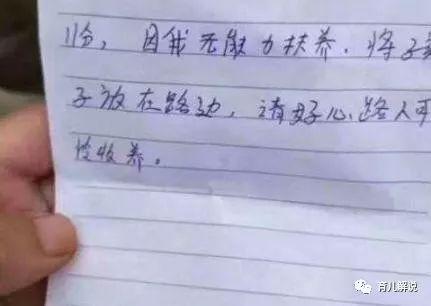 份，因我无能力扶养．将
子放在路边，请好心路人可
怜收养。
育儿解说